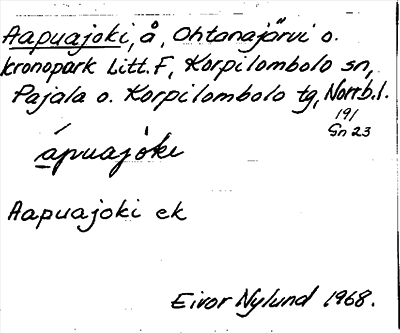 Aapuajoki, å, Ohtanajärvi o.
kronopark Litt. F, Korpilombolo sn,
Pajala o. Korpilombolo tg, Norrb. l.
191
Gn 23
ápuajòki
Aapuajoki ek
Eivor Nylund 1968.